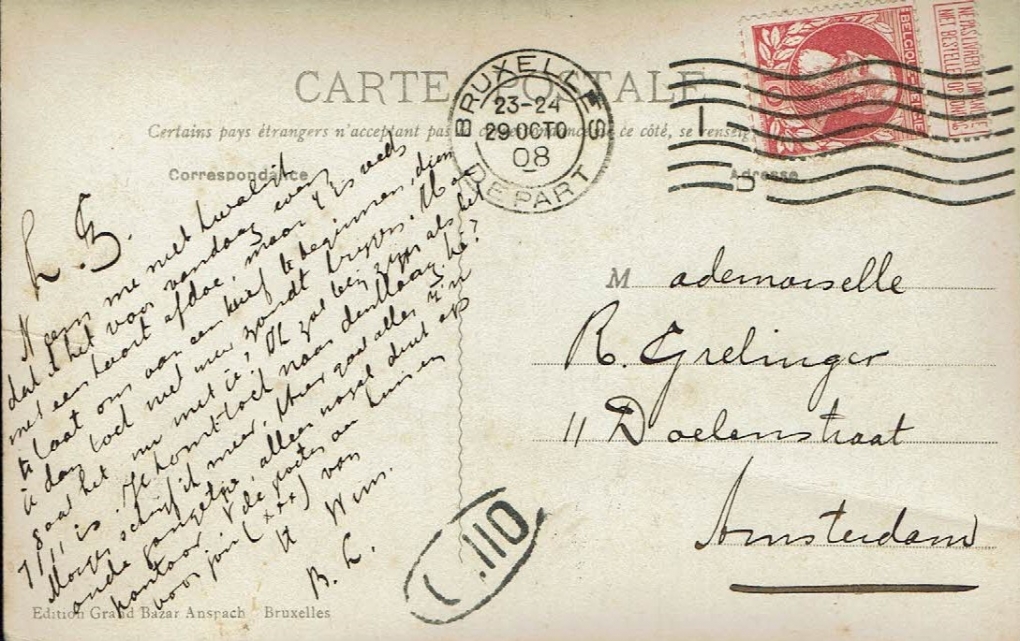 CARTE POSTALE
Certains pays étrangers n'acceptent pas de ce côté, se renseig
Correspondance
Adresse
BRUXELLES
23-24
29 OCTO
08
DEPART
BELGIQUE
NE PAS LIVRER LE DIMANCHE
NIET BESTELLEN OP ZONDAG
L. B.
Neem me niet kwalijk
dat ik het voor vandaag even
met een kaart afdoe, maar 't is veels
te laat om aan een brief te beginnen, dien
je dan toch niet meer zoudt krijgen.
gaat het nu met je? Ik zal blij zijn als het
is. Je komt toch naar den Haag, hè?
Morgen schrijf ik meer. Hier gaat alles z'n
oude gangetje, alleen nogal druk op
kantoor. de groeten aan huis en
voor jou (xxx) van
Wim.
B. L.
Mademoiselle
R. Grelinger
11 Doelenstraat
Amsterdam
110
Edition Grand Bazar Anspach Bruxelles